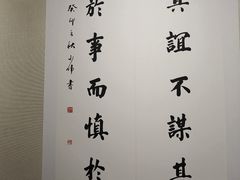 其誼不謀其
於事而慎於
癸卯之秋
書